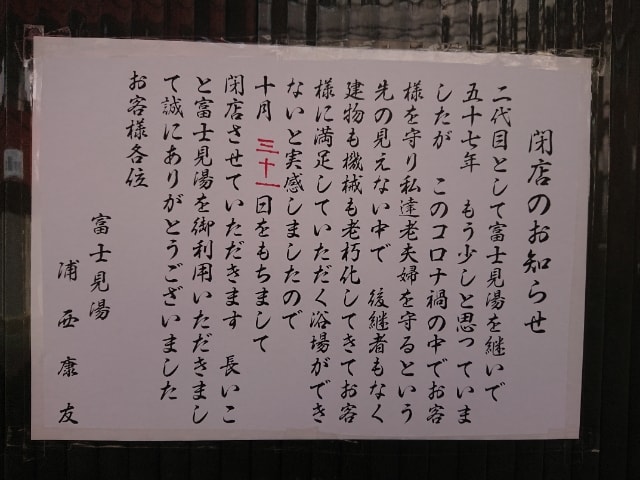 閉店のお知らせ
二代目として富士見湯を継いで
五十七年 もう少しと思っていま
したが このコロナ禍の中でお客
様を守り私達老夫婦を守るという
先の見えない中で 後継者もなく
建物も機械も老朽化してきてお客
様に満足していただく浴場ができ
ないと実感しましたので
十月 三十一日をもちまして
閉店させていただきます 長いこ
と富士見湯を御利用いただきまし
て誠にありがとうございました
お客様各位
富士見湯
浦西康友